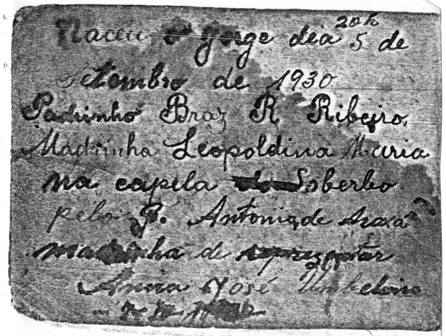 20h
Naceu o Jorge dia 5 de
setembro de 1930
Padrinho Braz R. Ribeiro
Madrinha Leopoldina Maria
na capela do Soberbo
pelo P. Antonio de Araxá
madrinha de reprezentar
Anna José Umbelino